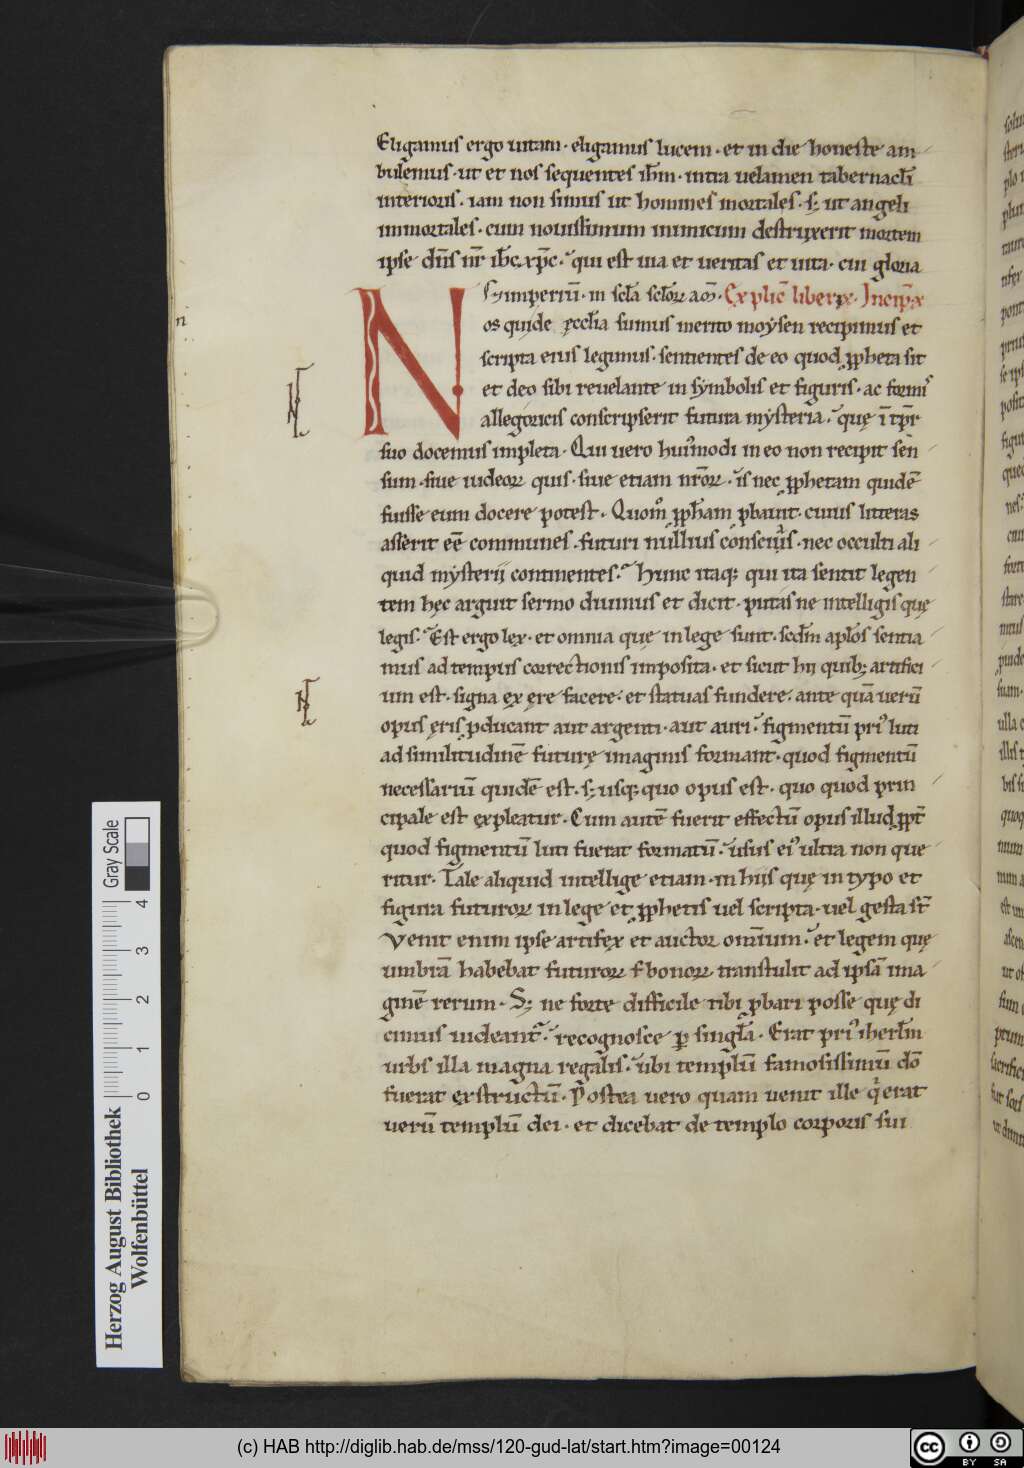 Eligamus ergo uitam · eligamus lucem · et in die honeste am
bulemus · ut et nos sequentes ih̅m · intra uelamen tabernacl̅i
interioris · iam non simus ut homines mortales · s; ut angeli
inmortales · cum nouissimum inimicum destruxerit mortem
ipse dn̅s nr̅ ih̅c xp̅c · qui est uia et ueritas et uita · cui gloria
& imperiu̅ · in scl̅a scl̅oꝝ am̅ · Explic̅ liber ıx · Incip̅ x
n
Nos quide ęccl̅ia sumus merito moẏsen recipimus et
scripta eius legimus · sentientes de eo quod ꝓpheta sit
et deo sibi reuelante in sẏmbolis et figuris · ac formis
allegoricis conscripserit futura mẏsteria · quę i̅ tp̅r
suo docemus impleta · Qui uero huiꝰmodi in eo non recipit sen
sum · siue iudeoꝝ quis · siue etiam nr̅oꝝ · is nec ꝓphetam quide̅
fuisse eum docere potest · Quom̊ ꝓph̅am ꝓbauit · cuius litteras
asserit ee̅ communes · futuri nullius conscius · nec occulti ali
quid mẏsterii continentes · Hunc itaq; qui ita sentit legen
tem hęc arguit sermo diuinus et dicit · putas ne intelligis quę
legis · Est ergo lex · et omnia quę in lege sunt · scdm̅ apl̅os senten
mus ad tempus correctionis imposita · et sicut hii quib; artifici
um est · signa ex ęre facere · et statuas fundere · ante qua̅ ueru̅
opus ęris ꝓducant aut argenti · aut auri · figmentu̅ priꝰ luti
ad similitudine̅ futurę imaginis formant · quod figmentu̅
necessariu̅ quide̅ est · s; usq; quo opus est · quo quod prin
cipale est expleatur · Cum aute̅ fuerit effectu̅ opus illud ꝓpt̅
quod figmentu̅ luti fuerat formatu̅ · usus eiꝰ ultra non que
ritur · Tale aliquid intellige etiam in hiis quę in typo et
figura futuroꝝ in lege et ꝓphetis uel scripta · uel gesta st̅
Venit enim ipse artifex et auctor omium · et legem quę
umbra̅ habebat futuroꝝ bonoꝝ transtulit ad ipsa̅ ima
gine̅ rerum · S; ne forte difficile tibi ꝓbari posse quę di
cimus uideant᷑ · recognosce ꝑ singl̅a · Erat priꝰ iherl̅m
urbs illa magna regalis · ubi templu̅ famosissimu̅ do̅
fuerat exstructu̅ · Postea uero quam uenit ille q̍ erat
ueru̅ templu̅ dei · et dicebat de templo corporis sui
Herzog August Bibliothek
Wolfenbüttel
Gray Scale
0 1 2 3 4
(c) HAB http://diglib.hab.de/mss/120-gud-lat/start.htm?image=00124
cc BY SA